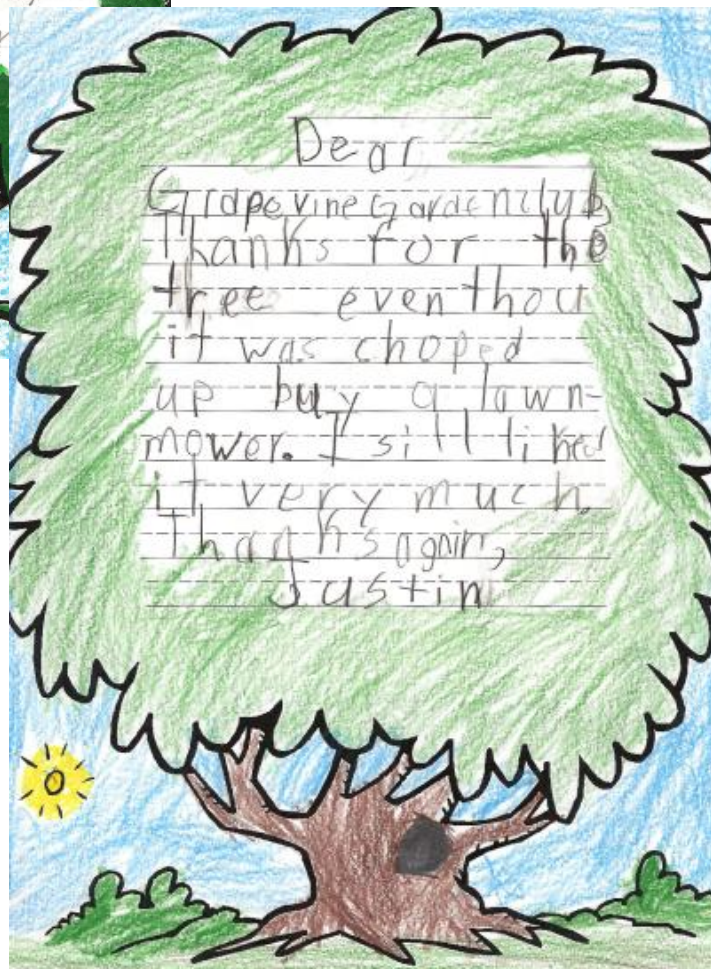 Dear
Grapevine Garden club,
Thanks for the
tree eventhou
it was choped
up buy a lawn-
mower. I sitll liked
it very much.
Thanks again,
Justin